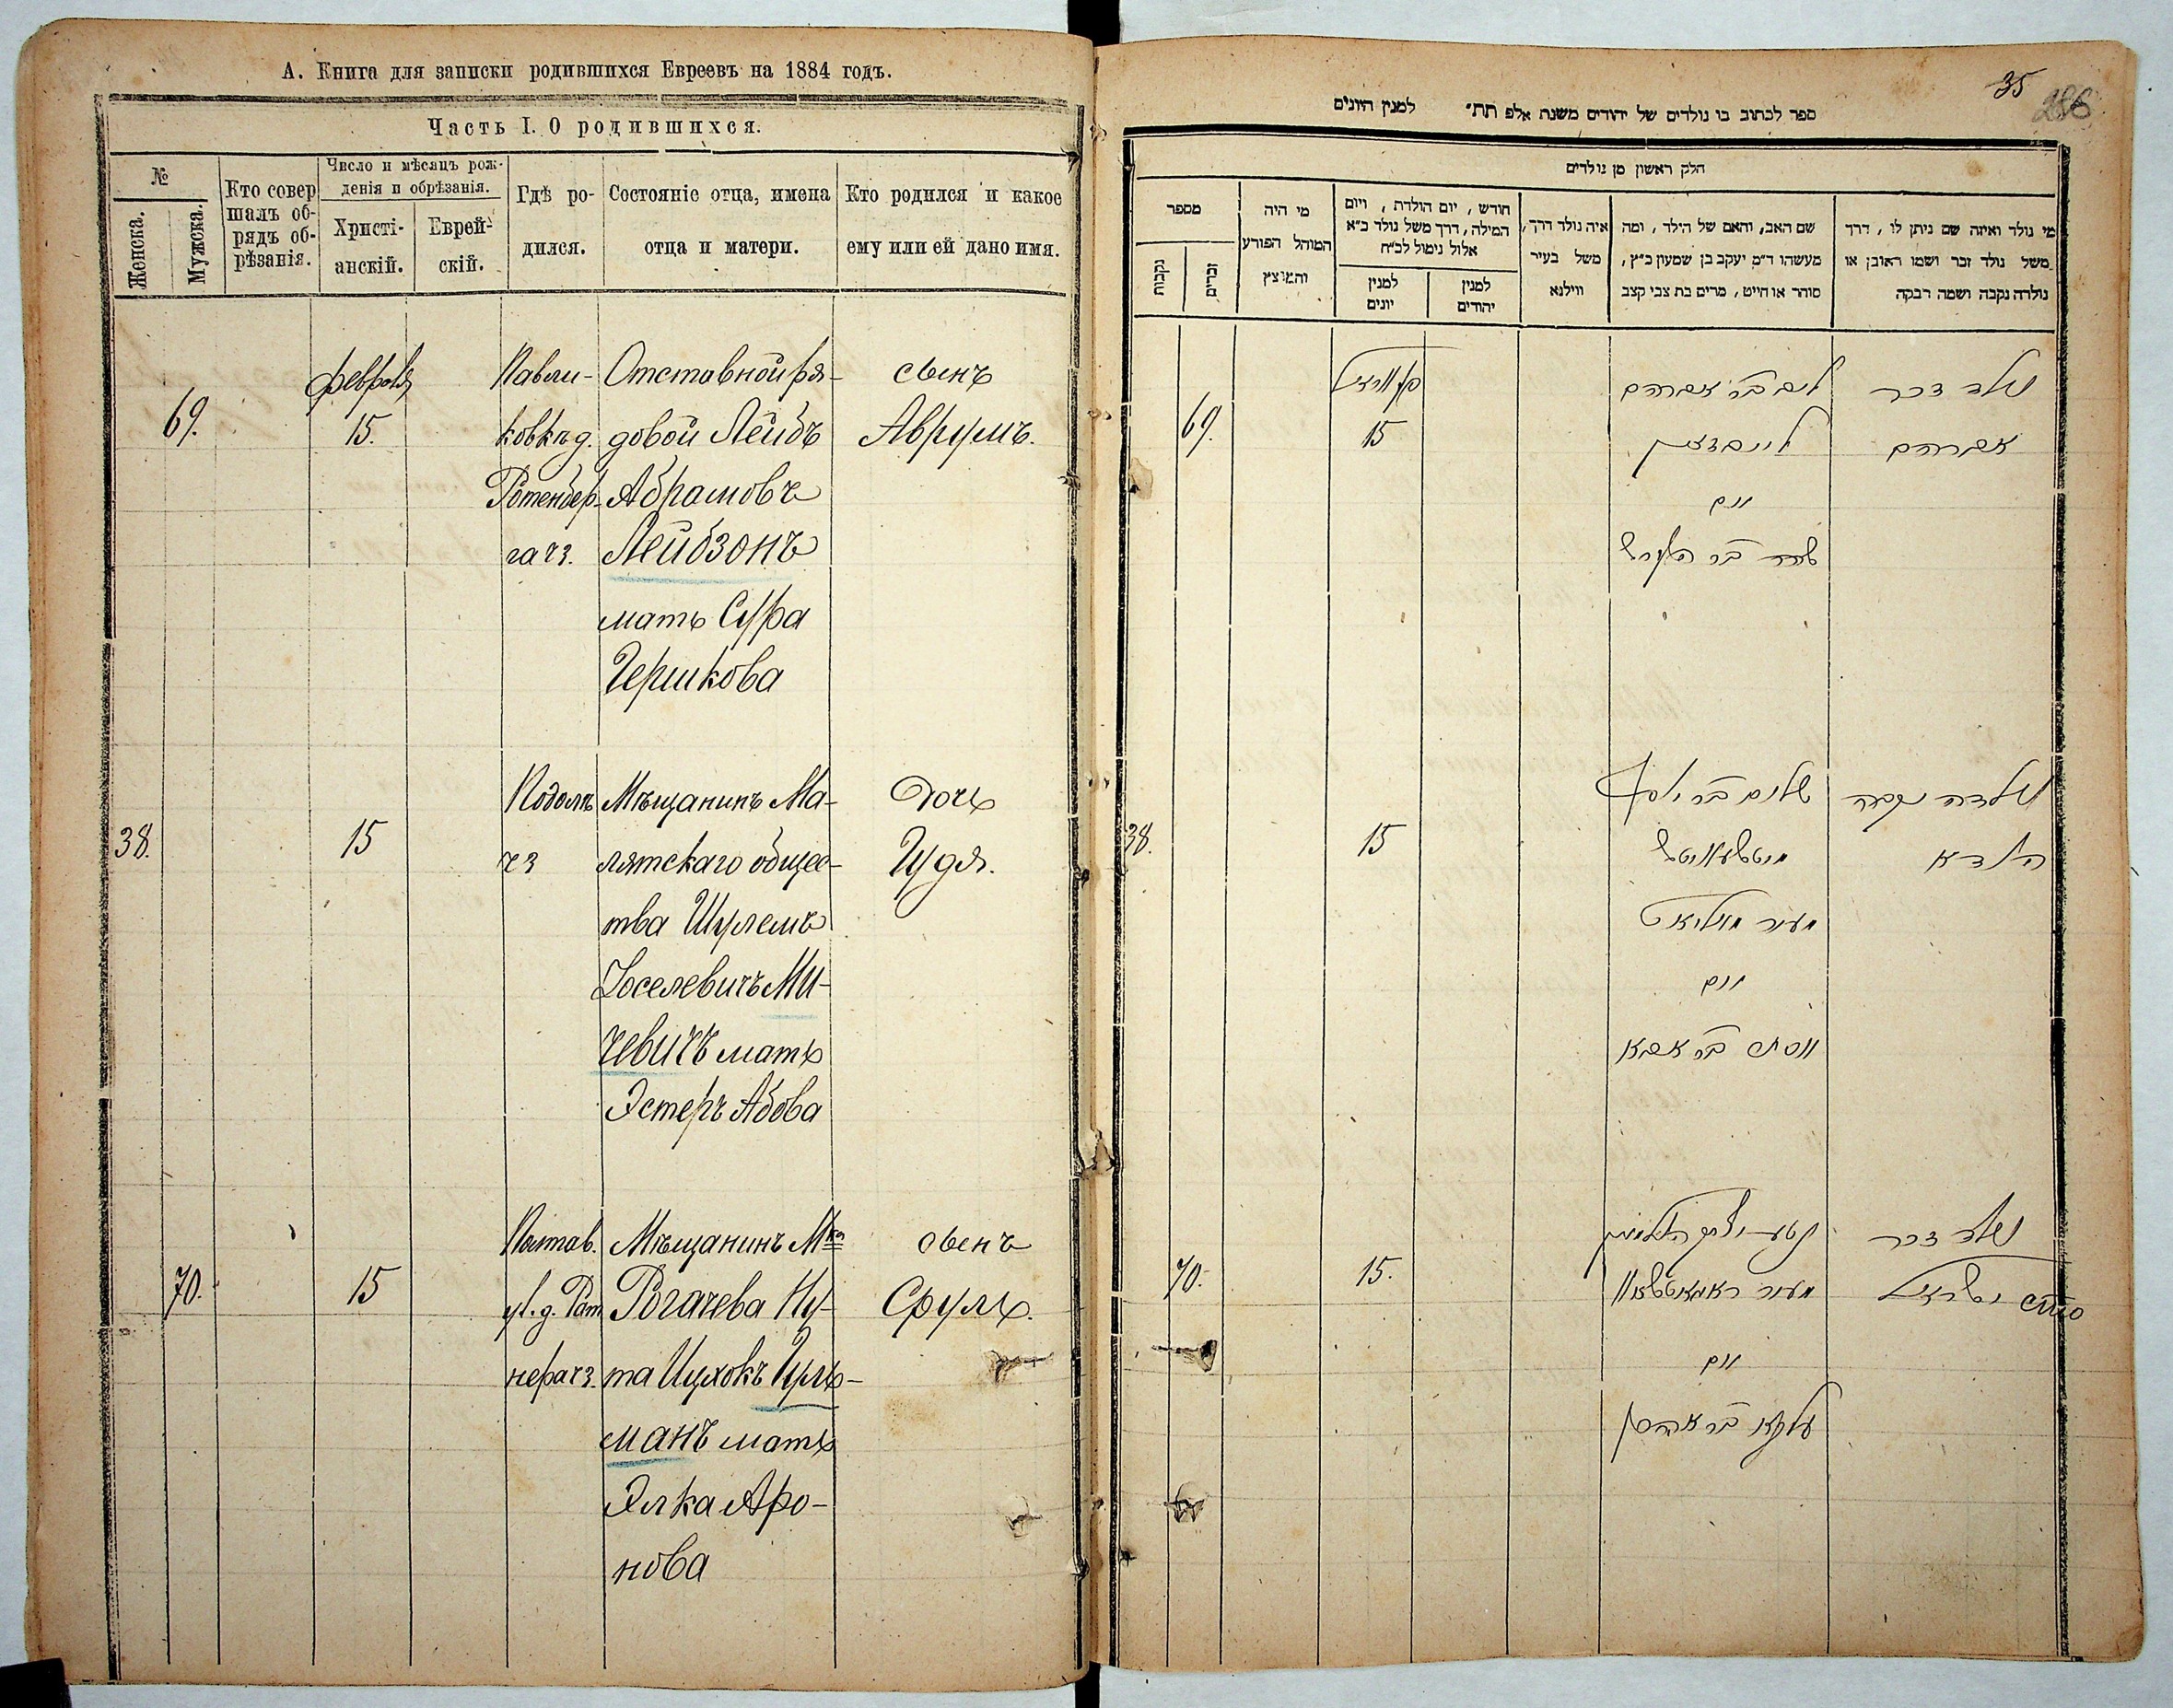 А. Книга для записки родившихся Евреевъ на 1884 годъ.
Часть I. О родившихся.
№
Женска.
Мужска.
Кто совершалъ об-
рядъ об-
рѣзанія.
Число и мѣсяцъ рож-
денія и обрѣзанія.
Христі-
анскій.
Еврей-
скій.
Гдѣ ро-
дился.
Состояніе отца, имена
отца и матери.
Кто родился и какое
ему или ей дано имя.
69.
февраля
15.
Павли-
ковкѣ д.
Ротенбер-
га чз.
Отставной ря-
довой Лейбъ
Абрамовъ
Лейбзонъ
мать Сура
Гершкова
сынъ
Аврумъ.
38.
15
Подолѣ
чз
Мѣщанинъ Ма-
лятскаго общес-
тва Шулемъ
Іоселевичъ Ми-
чевичъ мать
Эстеръ Абова
Дочь
Гудя.
70.
15
Полтав.
ул. д. Рат
нера чз.
Мѣщанинъ Мка
Рогачева Ну-
та Ицхокъ Гуль-
манъ мать
Элка Аро-
нова
сынъ
Сруль.
35
286
ספר לכתוב בו נולדים של יהודים משנת אלפ תת״ למנין היונים
חלק ראשון מן נולדים
מספר
נקבות
זכרים
מי היה
המוהל הפורע
והמוצץ
חודש, יום הולדת, ויום
המילה, דרך משל נולד כ״א
אלול נימול לכ״ח
למנין
יונים
למנין
יהודים
איה נולד דרך,
משל בעיר
ווילנא
שם האב, והאם של הילד, ומה
מעשהו ד״מ יעקב בן שמעון כ״ץ,
סוחר או חייט, מרים בת צבי קצב
מי נולד ואיזה שם ניתן לו, דרך
משל נולד זכר ושמו ראובן או
נולדה נקבה ושמה רבקה
69.
15
נולד זכר
אברהם
ליב בר אברהם
לייבזאן
ואם
שרה בר הערש
38.
15
נולדה נקבה
הודא
שלום בר יוסף
מיטשעוויטש
מעיר מאליאט
ואם
אסתר בר אבא
70.
15.
נולד זכר
ישראל
ואם
עלקא בר אהרן